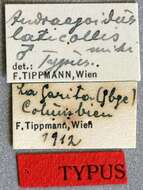 Andraegoidus
laticollis
♂ Typus. mihi
det.:
F. TIPPMANN, Wien
La Garita (Pbge)
Columbien
F. Tippmann, Wien
1912
TYPUS